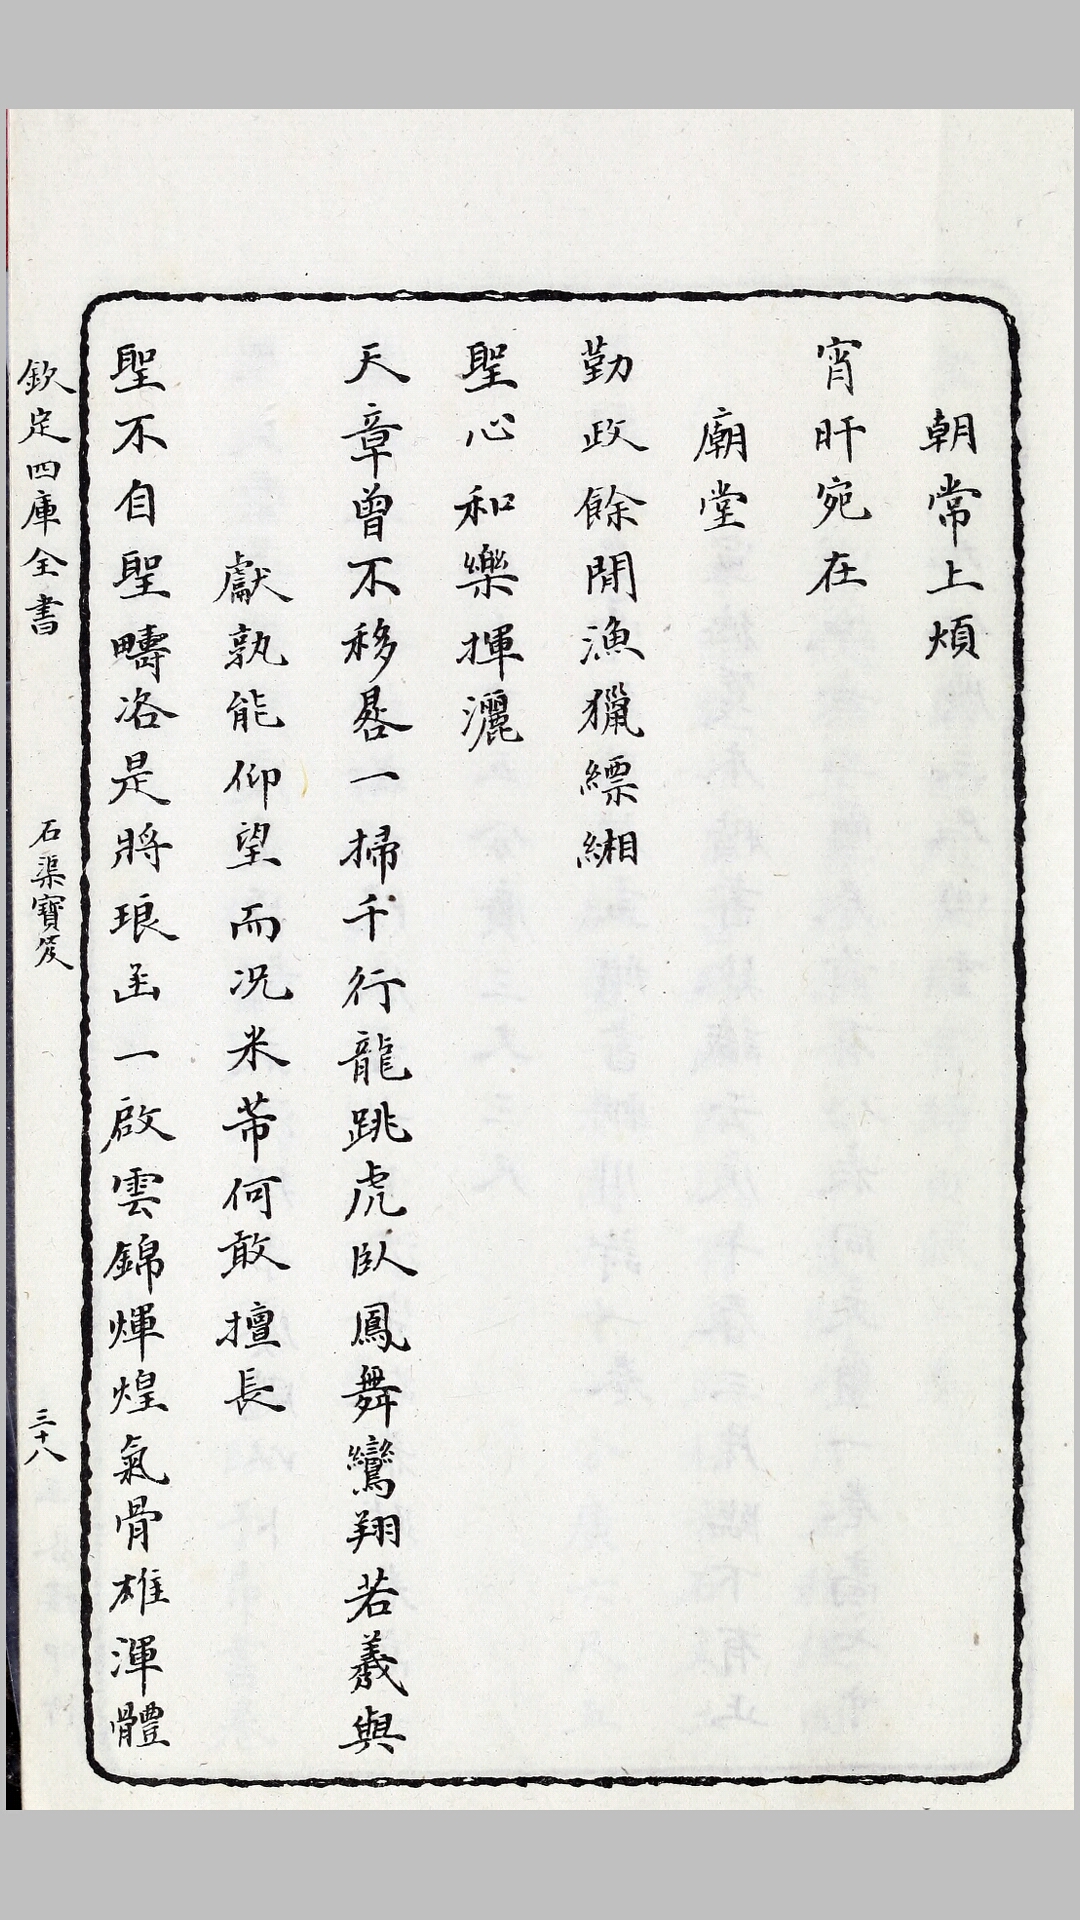 朝常上煩
宵旰宛在
廟堂
勤政餘閒漁獵縹緗
聖心和樂揮灑
天章曾不移晷一掃千行龍跳虎臥鳳舞鸞翔若羲與
獻孰能仰望而况米芾何敢擅長
聖不自聖疇咨是將琅函一啟雲錦煇煌氣骨雄渾體
欽定四庫全書
石渠寶笈
三十八